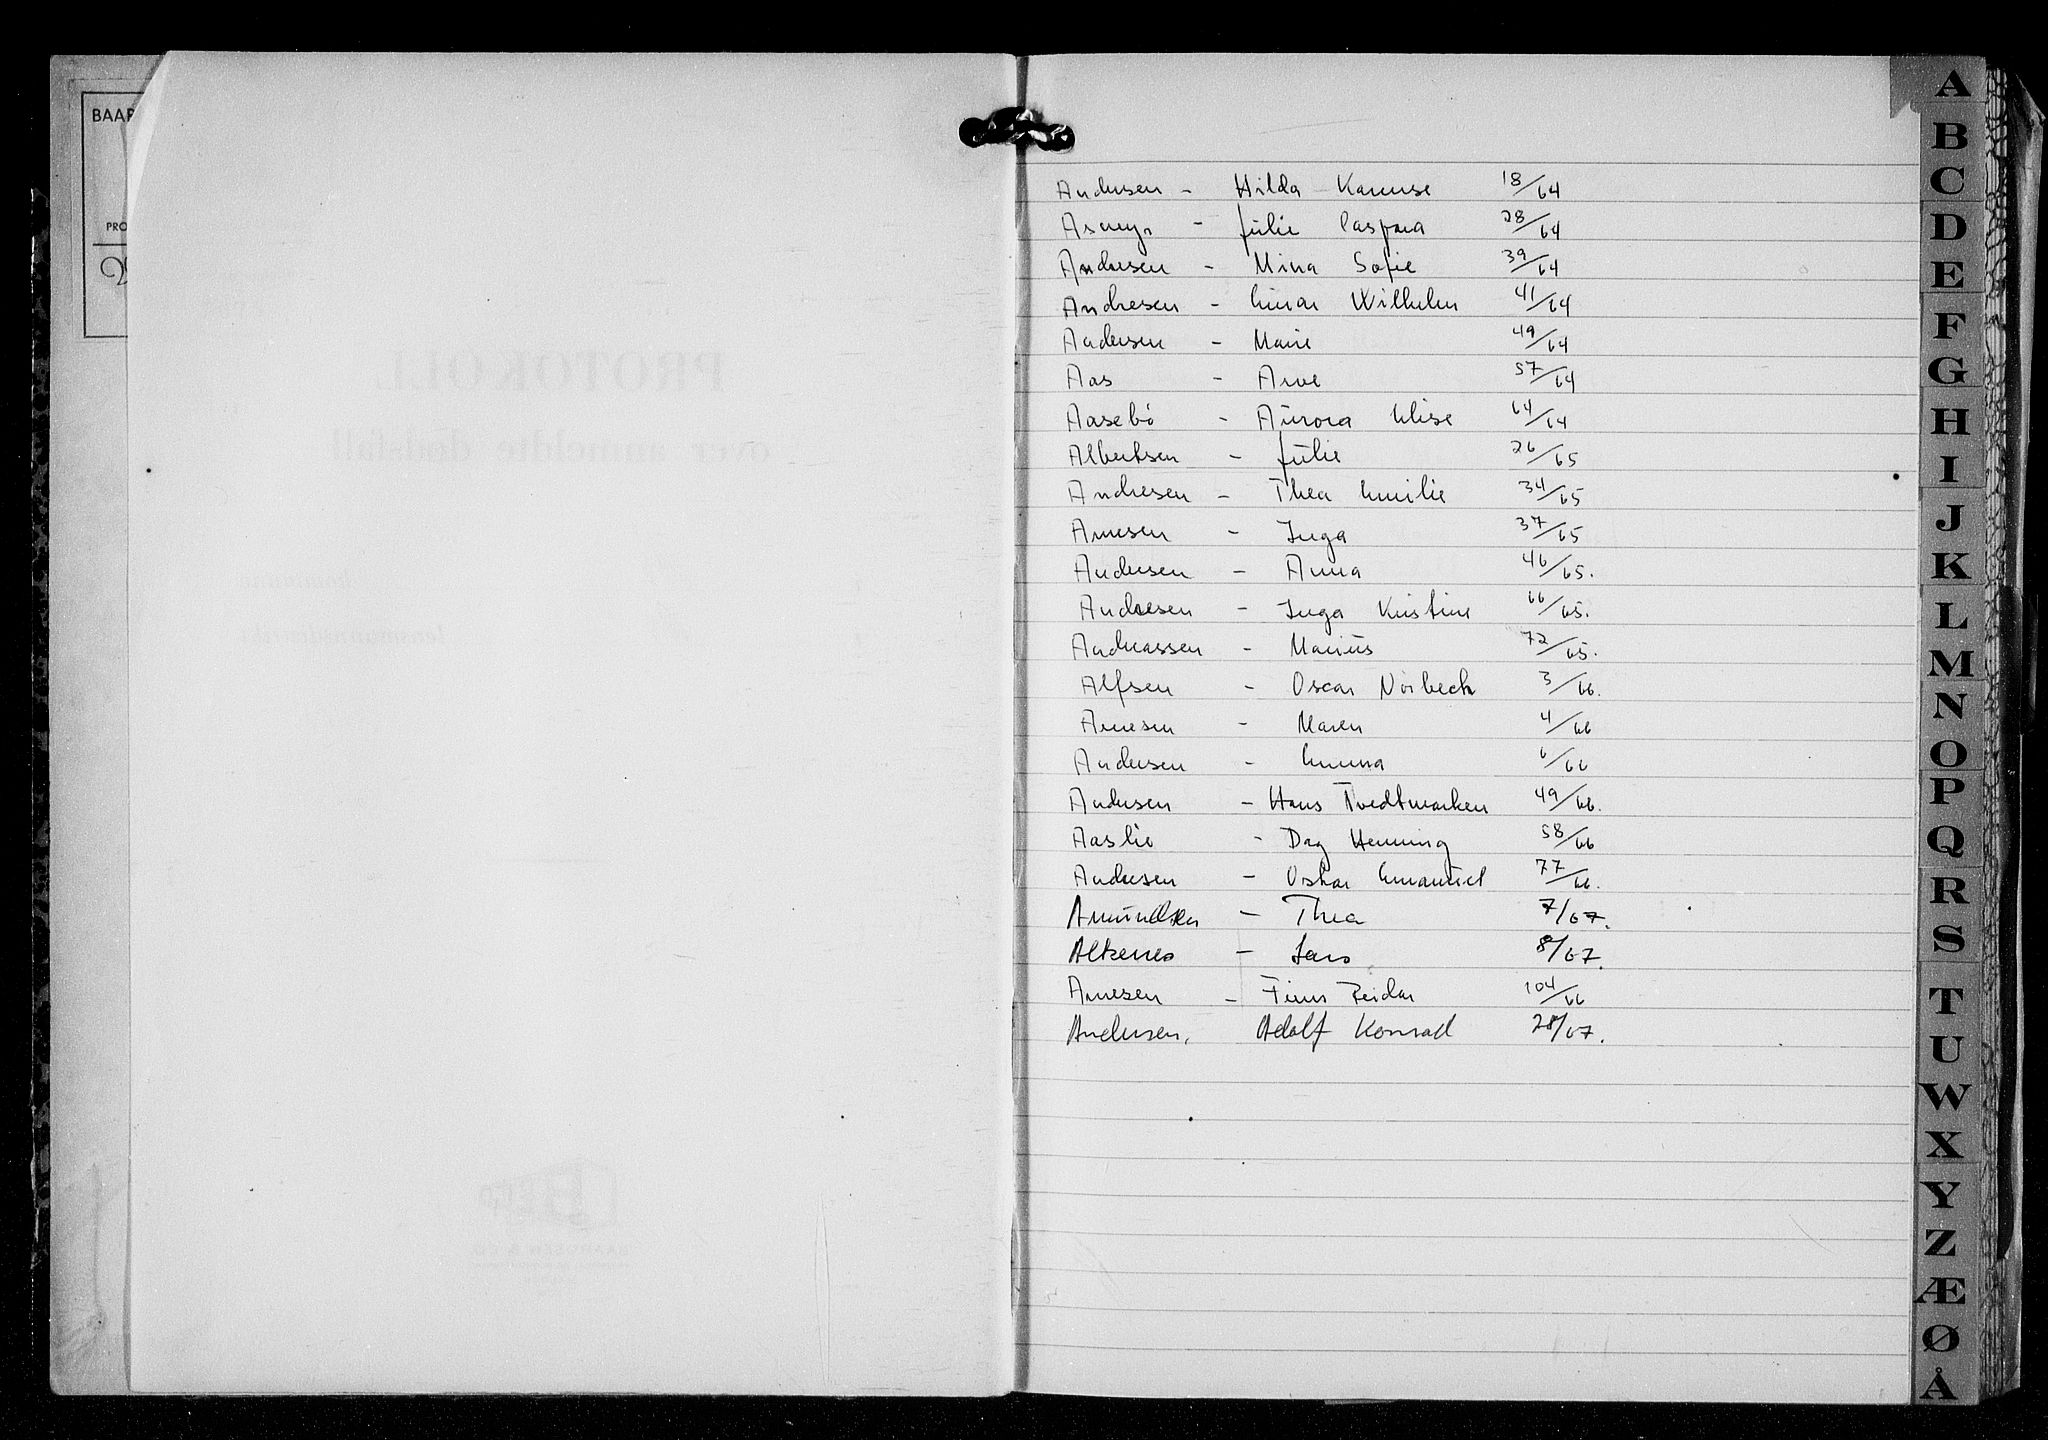 BAAR
PRO
PROTOKOLL
over anmeldte dødsfall
kommune
lensmannsdistrikt
Andersen - Hilda Karense 18/64
Asmyr - Julie Caspara 28/64
Andresen - Mina Sofie 39/64
Andresen - Einar Wilhelm 41/64
Andersen - Marie 49/64
Aas - Arve 57/64
Aasebö - Aurora Elise 64/64
Albertsen - Julie 26/65
Andresen - Thea Emilie 34/65
Arnesen - Inga 37/65
Andersen - Anna 46/65.
Andresen - Inga Kristine 66/65.
Andreassen - Marius 72/65.
Alfsen - Oscar Norbech 3/66.
Arnesen - Maren 4/66
Andersen - Emma 6/66
Andersen - Hans Tvedtmarken 49/66.
Aaslie - Dag Henning 58/66
Andersen - Oskar Emanuel 77/66.
Amundsen - Thea 7/67.
Alkenes - Lars 8/67.
Arnesen - Finn Reidar 104/66
Andersen, Adolf Konrad 28/67.
A
B
C
D
E
F
G
H
I
J
K
L
M
N
O
P
Q
R
S
T
U
W
X
Y
Z
Æ
Ø
Å